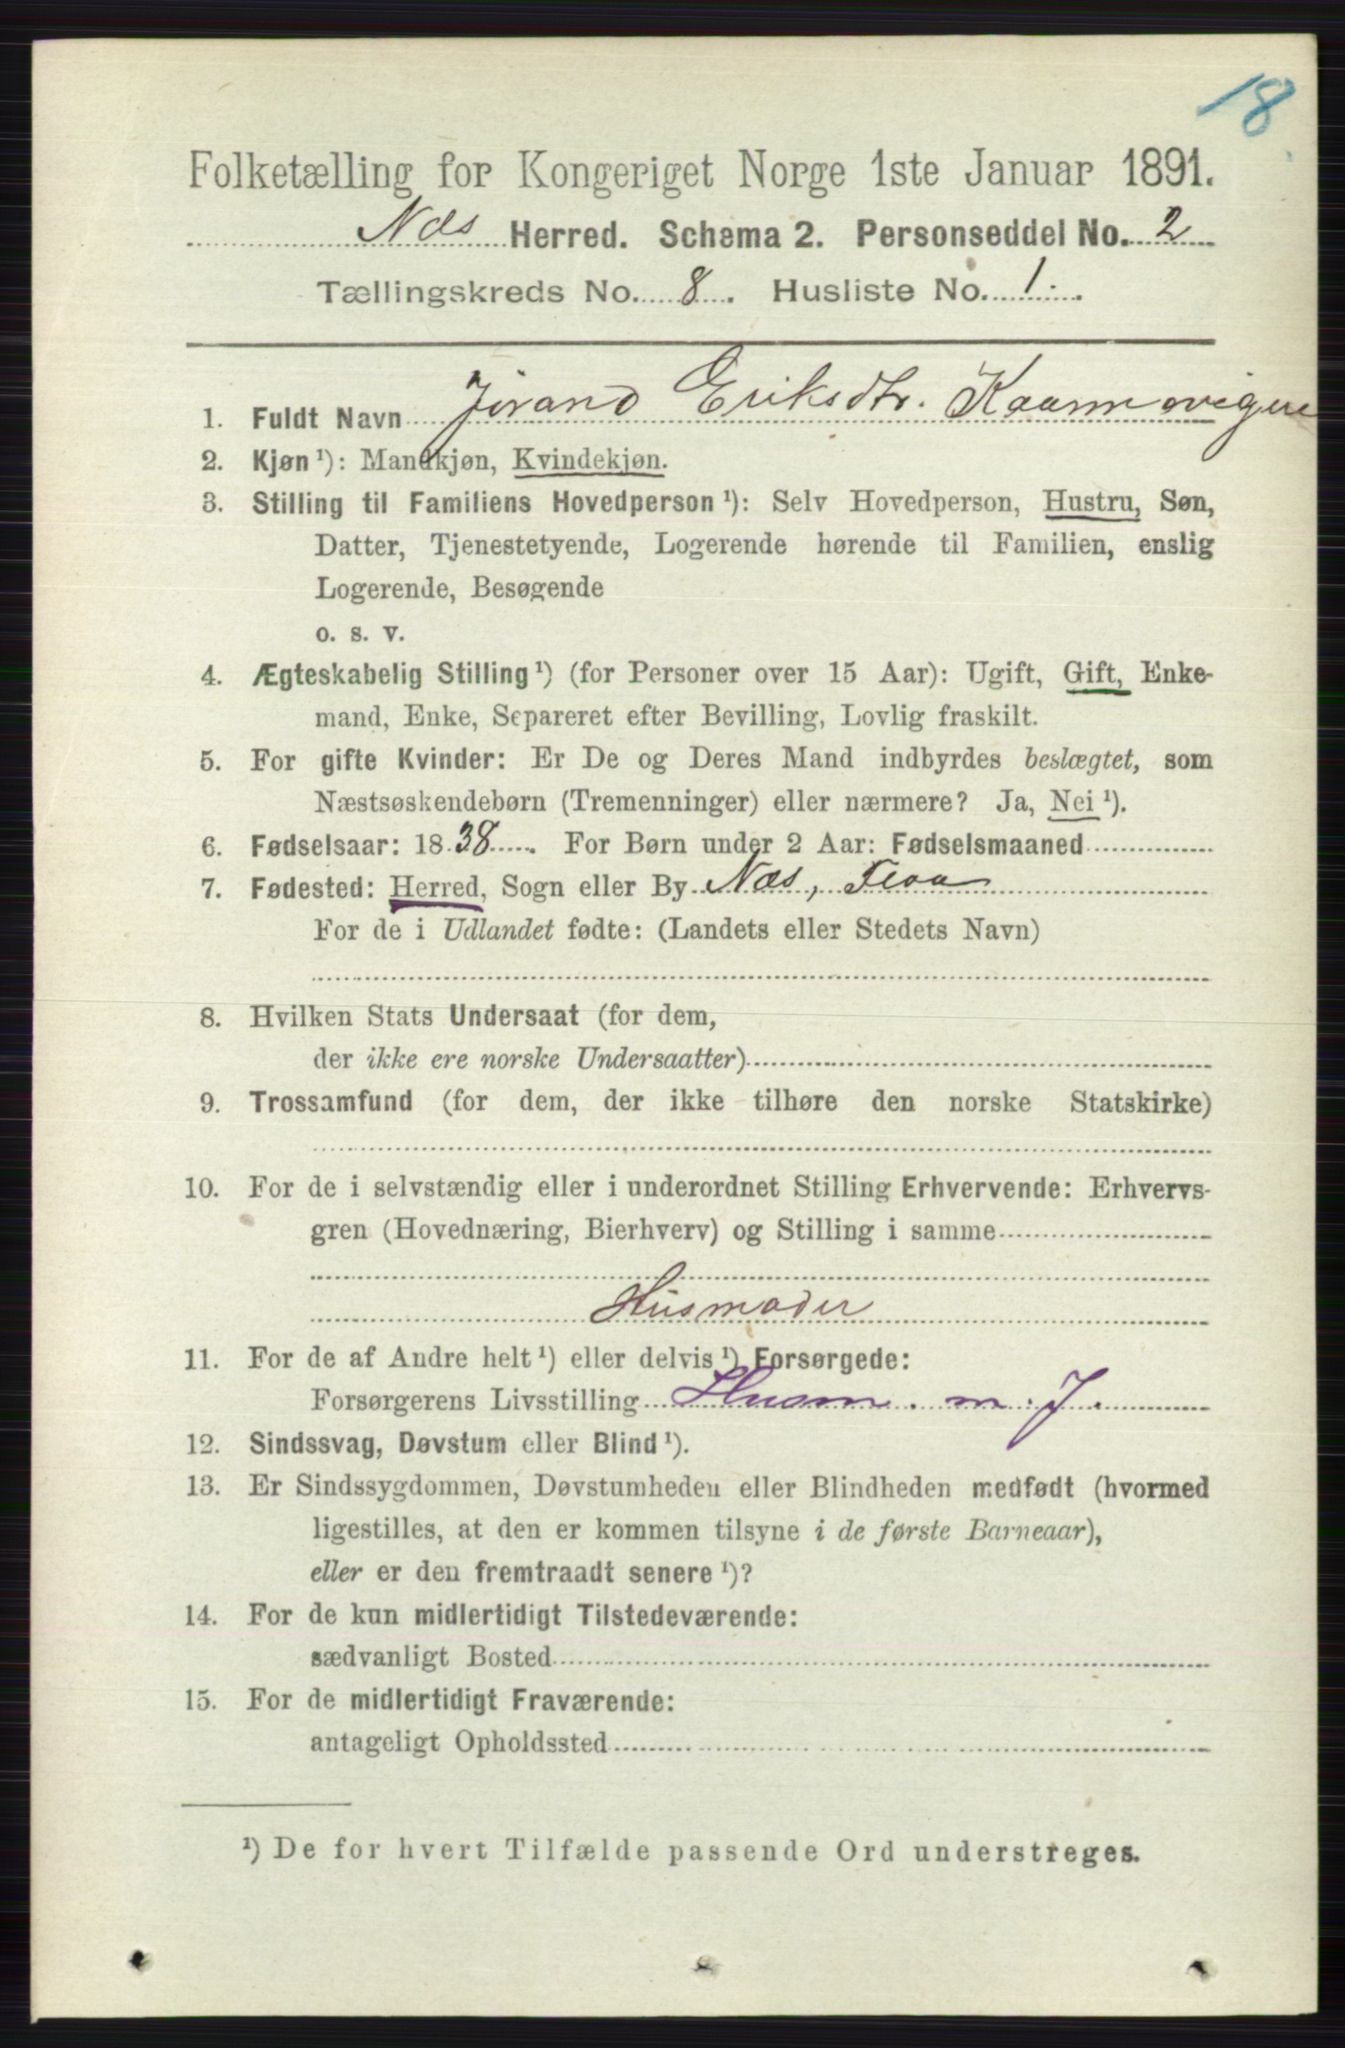 18
Folketælling for Kongeriget Norge 1ste Januar 1891.
Næs Herred. Schema 2. Personseddel No. 2
Tællingskreds No. 8. Husliste No. 1.
1. Fuldt Navn Jørand Eriksdtr.
2. Kjøn¹): Mandkjøn, Kvindekjøn.
3. Stilling til Familiens Hovedperson¹): Selv Hovedperson, Hustru, Søn,
Datter, Tjenestetyende, Logerende hørende til Familien, enslig
Logerende, Besøgende
o. s. v.
4. Ægteskabelig Stilling¹) (for Personer over 15 Aar): Ugift, Gift, Enke-
mand, Enke, Separeret efter Bevilling, Lovlig fraskilt.
5. For gifte Kvinder: Er De og Deres Mand indbyrdes beslægtet, som
Næstsøskendebørn (Tremenninger) eller nærmere? Ja, Nei¹).
6. Fødselsaar: 1838. For Børn under 2 Aar: Fødselsmaaned
7. Fødested: Herred, Sogn eller By Næs, Flaa
For de i Udlandet fødte: (Landets eller Stedets Navn)
8. Hvilken Stats Undersaat (for dem,
der ikke ere norske Undersaatter)
9. Trossamfund (for dem, der ikke tilhøre den norske Statskirke)
10. For de i selvstændig eller i underordnet Stilling Erhvervende: Erhvervs-
gren (Hovednæring, Bierhverv) og Stilling i samme
Husmoder
11. For de af Andre helt¹) eller delvis¹) Forsørgede:
Forsørgerens Livsstilling Husm. m. J.
12. Sindssvag, Døvstum eller Blind¹).
13. Er Sindssygdommen, Døvstumheden eller Blindheden medfødt (hvormed
ligestilles, at den er kommen tilsyne i de første Barneaar),
eller er den fremtraadt senere¹)?
14. For de kun midlertidigt Tilstedeværende:
sædvanligt Bosted
15. For de midlertidigt Fraværende:
antageligt Opholdssted
¹) De for hvert Tilfælde passende Ord understreges.